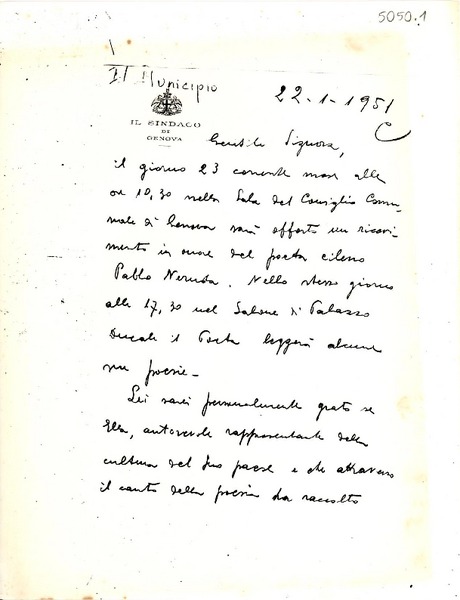 5050.1
Il Municipio
22-1-1951
IL SINDACO
DI
GENOVA
Gentile Signora,
il giorno 23 corrente mese alle
ore 10,30 nella Sala del Consiglio Comu-
nale di Genova sarà offerto un ricevi-
mento in onore del poeta cileno
Pablo Neruda. Nello stesso giorno
alle 17,30 nel Salone di Palazzo
Ducale il Poeta leggerà alcune
sue poesie-
Le sarei personalmente grato se
Ella, autorevole rappresentante della
cultura del Suo paese e che attraverso
il canto della poesia ha raccolto